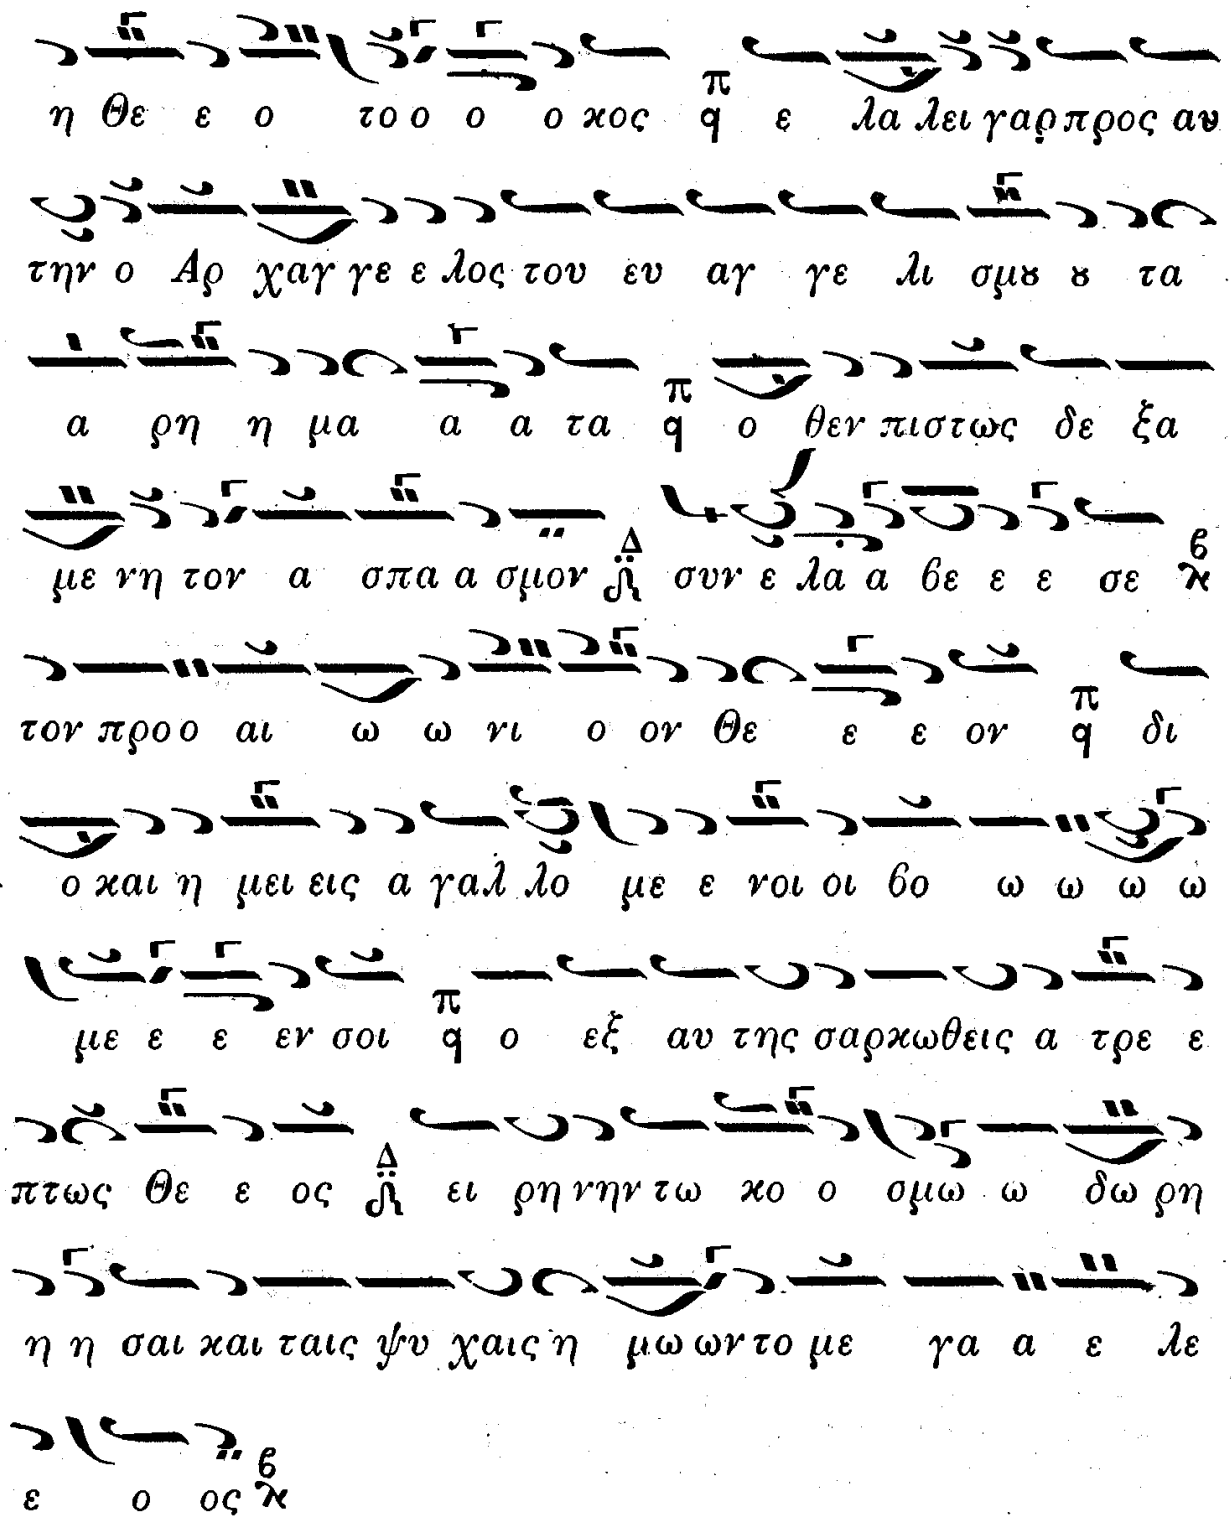 η Θε ε ο το ο ο ο κος π q ε λα λει γαρ προς αυ
την ο Αρ χαγ γε ε λος του ευ αγ γε λι σμȣ ȣ τα
α ρη η μα α α τα π q ο θεν πιστως δε ξα
με νη τον α σπα α σμον Δ συν ε λα α βε ε ε σε β
τον προ ο αι ω ω νι ο ον Θε ε ε ον π q δι
ο και η μει εις α γαλ λο με ε νοι οι βο ω ω ω ω
με ε ε εν σοι π q ο εξ αυ της σαρκωθεις α τρε ε
πτως Θε ε ος Δ ει ρη νην τω κο ο σμω ω δω ρη
η η σαι και ταις ψυ χαις η μω ων το με γα α ε λε
ε ο ος β